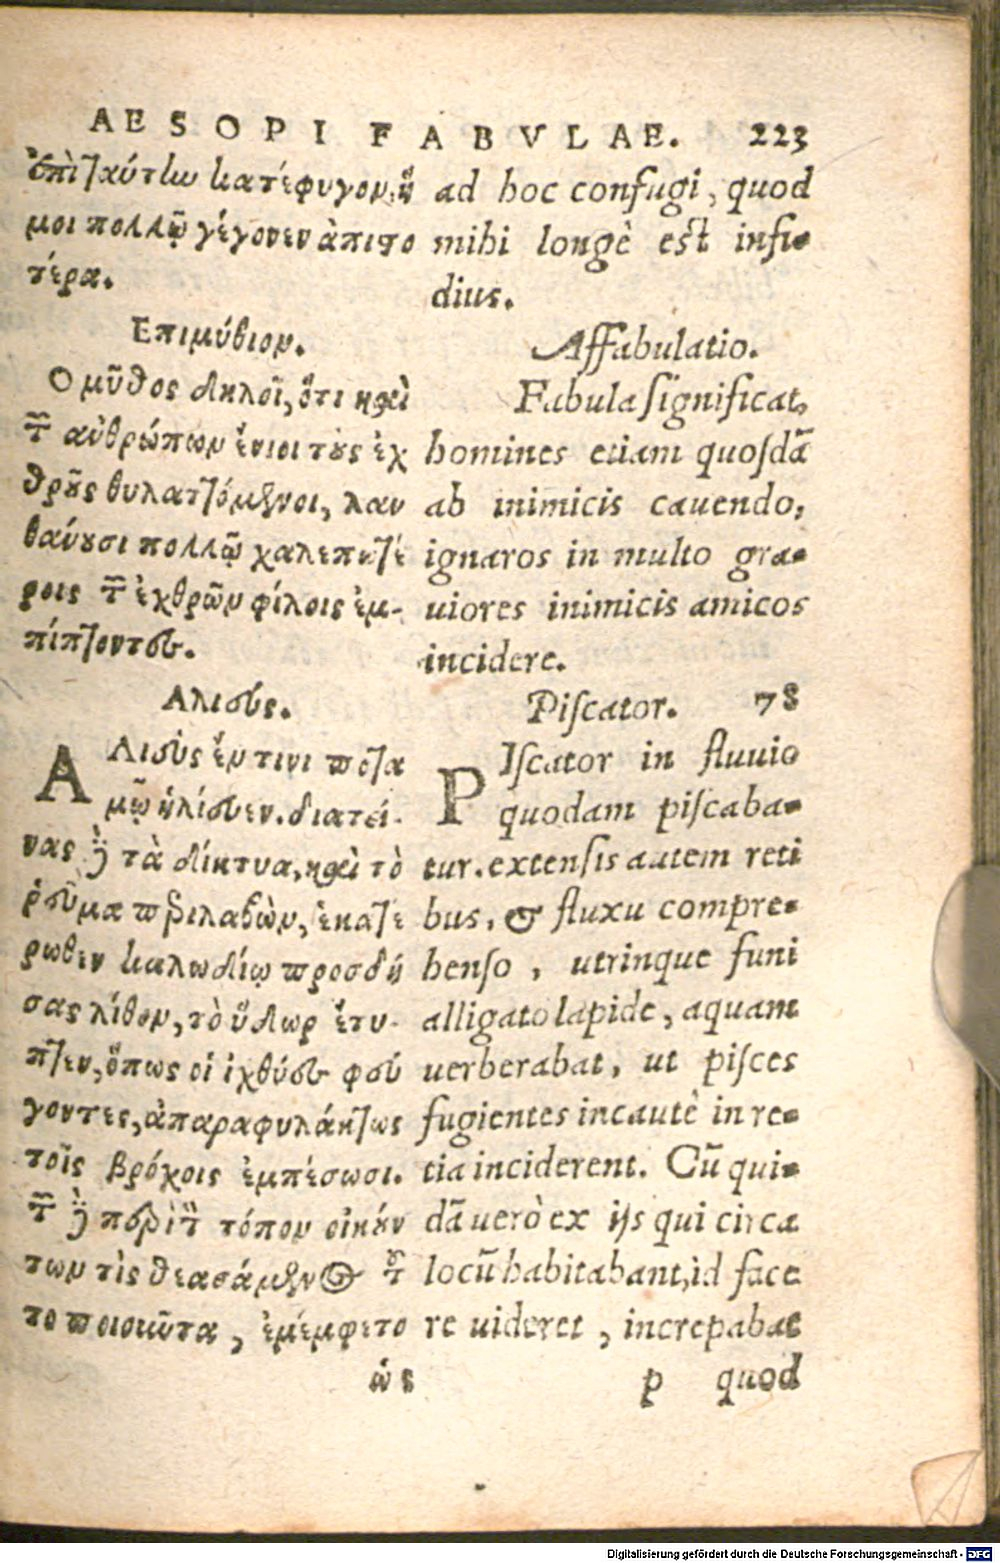 AESOPI FABVLAE. 223
ἐπὶ ταύτην κατέφυγον, ἥ
μοι πολλῷ γέγονεν ἀπιστο
τέρα.
Επιμύθιον.
Ο μῦθος δηλοῖ, ὅτι καὶ
τῶν ἀνθρώπων ἔνιοι τοὺς ἐχ
θροὺς φυλαττόμενοι, λαν
θάνουσι πολλῷ χαλεπωτέ
ροις τῶν ἐχθρῶν φίλοις ἐμ-
πίπτοντες.
Αλιεύς.
ΑΛιεὺς ἔν τινι ποτα
μῷ ἡλίευεν. διατεί-
νας δὲ τὰ δίκτυα, καὶ τὸ
ῥεῦμα περιλαβὼν, ἑκατέ
ρωθεν καλωδίῳ προσδή
σας λίθον, τὸ ὕδωρ ἔτυ-
πτεν, ὅπως οἱ ἰχθύες φεύ
γοντες, ἀπαραφυλάκτως
τοῖς βρόχοις ἐμπέσωσι.
τῶν δὲ περὶ τὸν τόπον οἰκούν
των τὶς θεασάμενος τοῦ
το ποιοῦντα, ἐμέμφετο
ὡς
ad hoc confugi, quod
mihi longè est infi-
dius.
Affabulatio.
Fabula ſignificat,
homines etiam quoſdã
ab inimicis cauendo,
ignaros in multo gra-
uiores inimicis amicos
incidere.
Piſcator. 78
PIſcator in fluuio
quodam piſcaba-
tur. extenſis autem reti
bus, & fluxu compre-
henſo, utrinque funi
alligato lapide, aquam
uerberabat, ut piſces
fugientes incautè in re-
tia inciderent. Cũ qui-
dã uerò ex ijs qui circa
locũ habitabant, id face
re uideret, increpabat
p quod
Digitalisierung gefördert durch die Deutsche Forschungsgemeinschaft - DFG